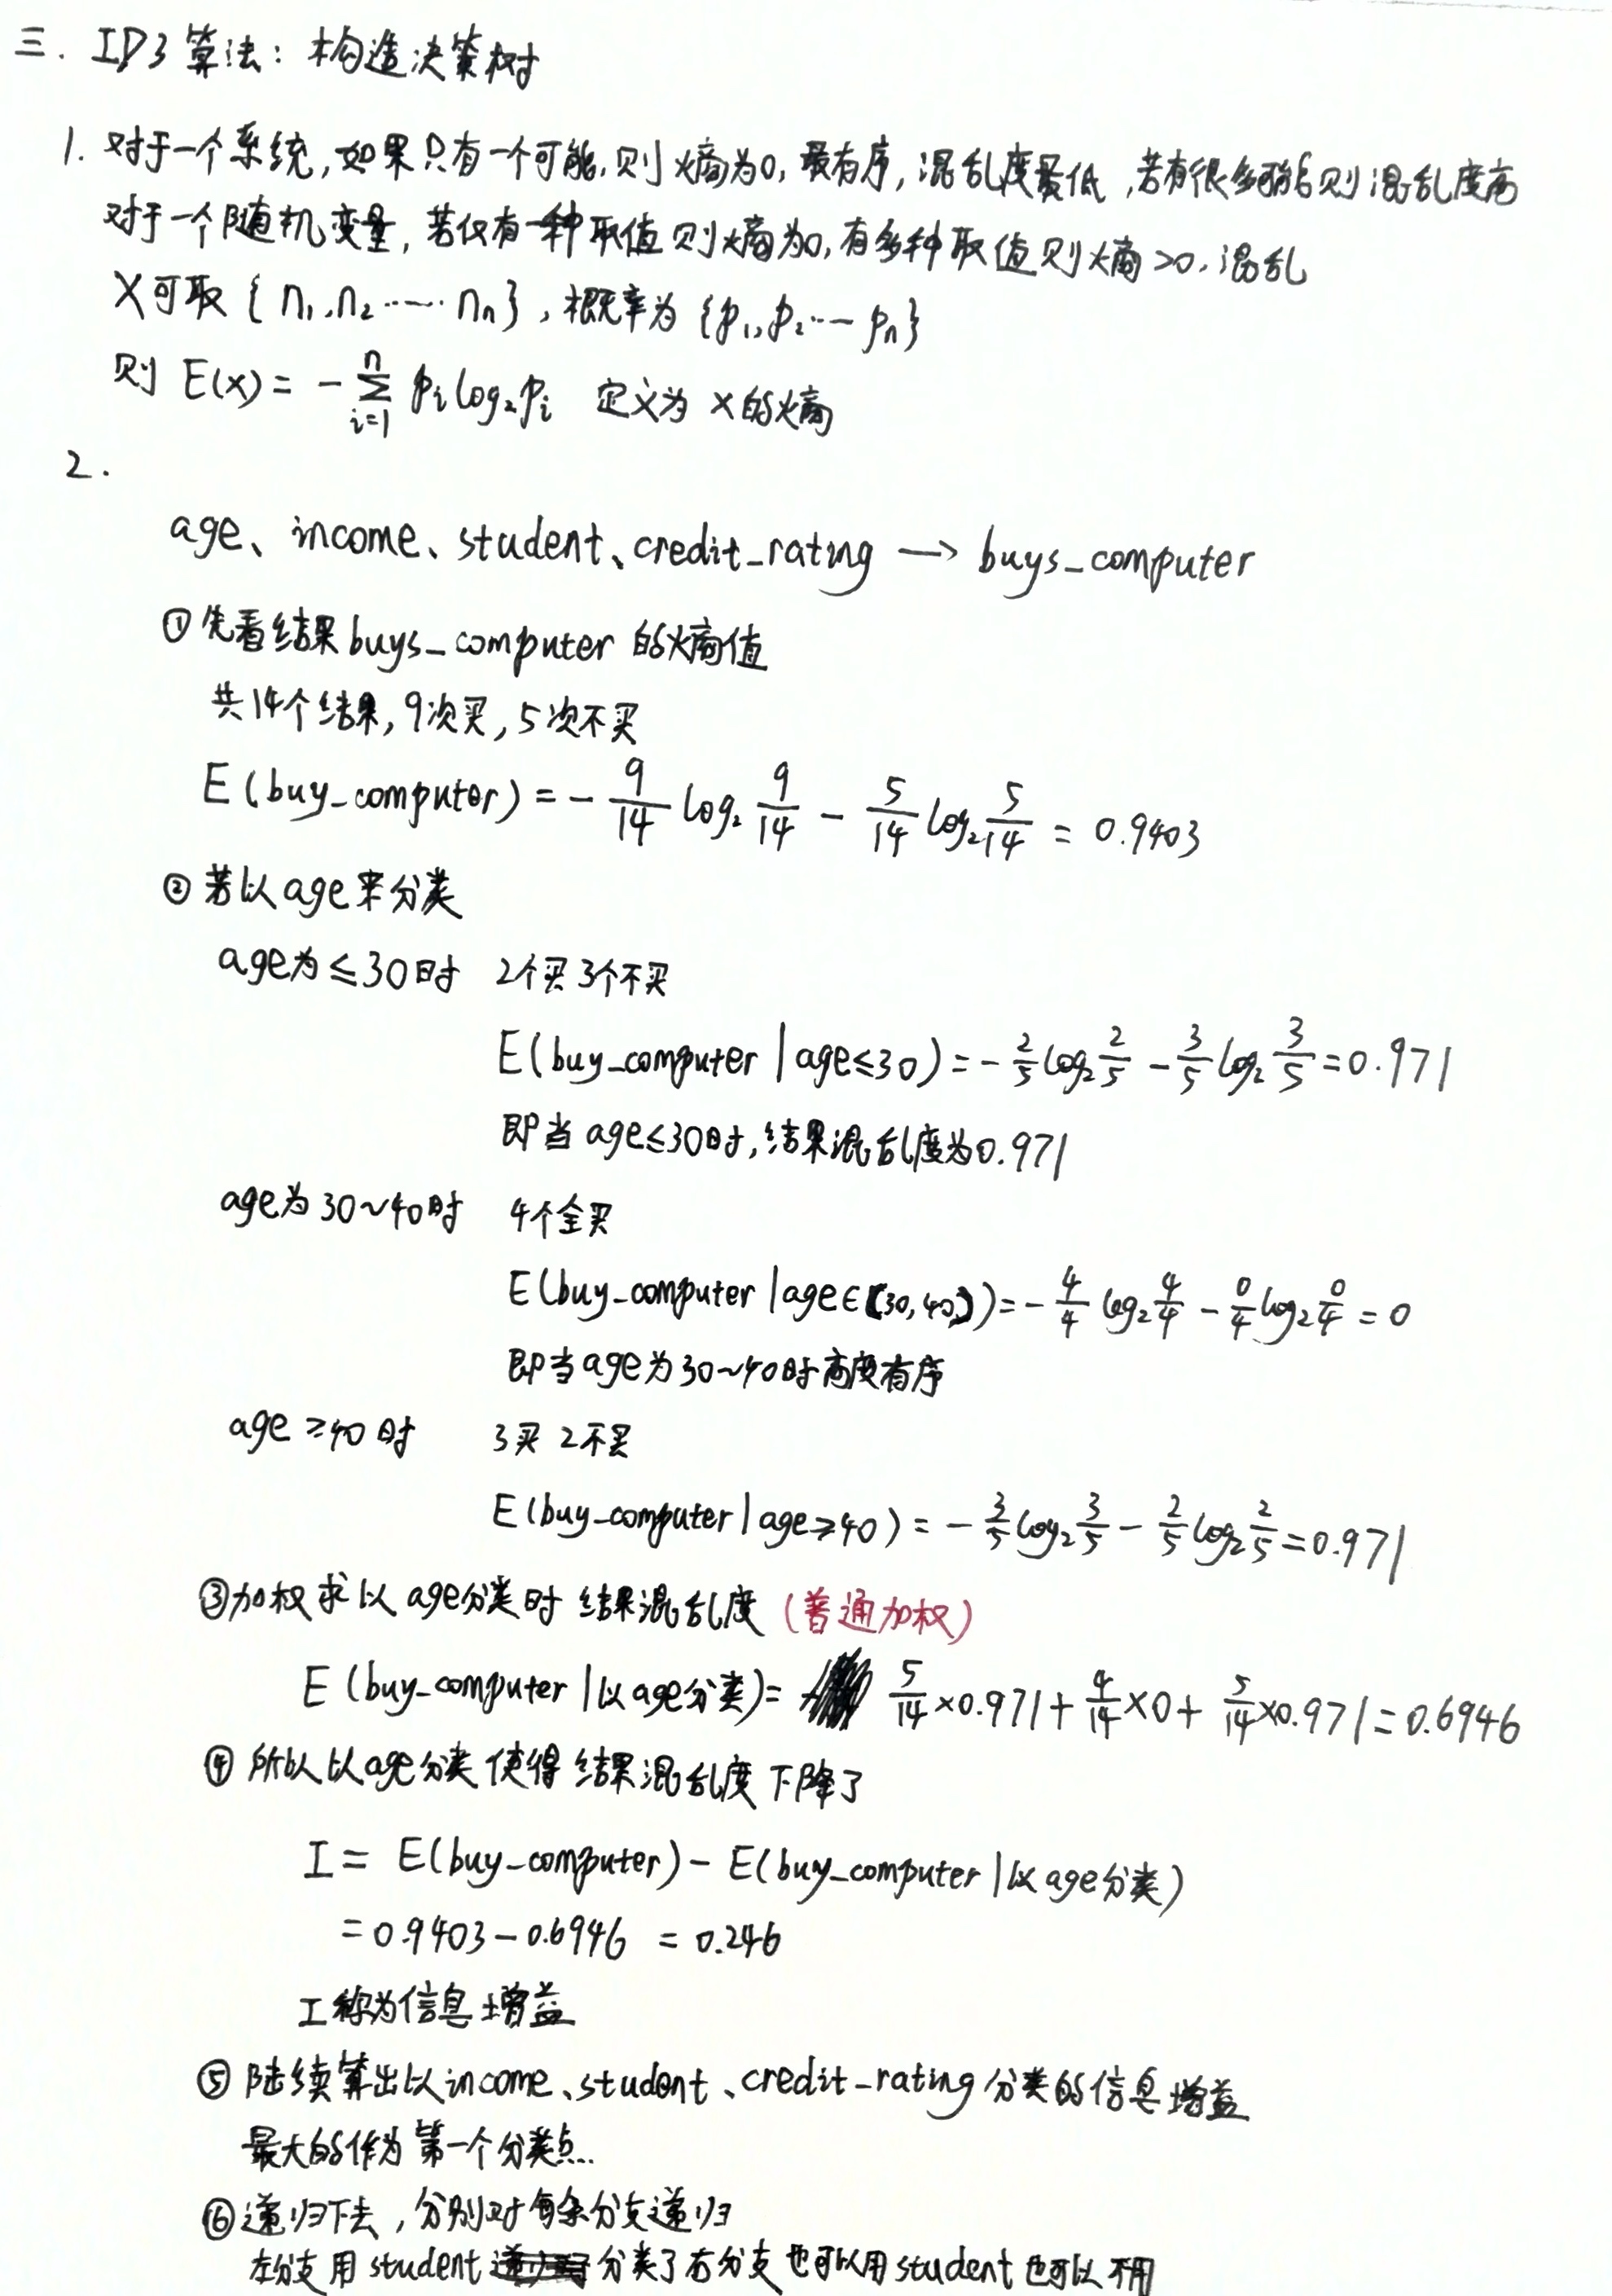 三. ID3算法: 构造决策树
1. 对于一个系统,如果只有一个可能,则熵为0,最有序,混乱度最低,若有很多可能则混乱度高
对于一个随机变量,若仅有一种取值则熵为0,有多种取值则熵>0,混乱
X可取{n₁,n₂……nₙ},概率为{p₁,p₂…pₙ}
则 E(x) = -∑ᵢ₌₁ⁿ pᵢ log₂pᵢ 定义为x的熵
2.
age、income、student、credit_rating → buys_computer
①先看结果buys_computer的熵值
共14个结果,9次买,5次不买
E(buy_computer) = - 9/14 log₂ 9/14 - 5/14 log₂ 5/14 = 0.9403
②若以age来分类
age为≤30时 2个买3个不买
E(buy_computer | age≤30) = - 2/5 log₂ 2/5 - 3/5 log₂ 3/5 = 0.971
即当age≤30时,结果混乱度为0.971
age为30~40时 4个全买
E(buy_computer | age∈(30,40)) = - 4/4 log₂ 4/4 - 0/4 log₂ 0/4 = 0
即当age为30~40时高度有序
age≥40时 3买 2不买
E(buy_computer | age≥40) = - 3/5 log₂ 3/5 - 2/5 log₂ 2/5 = 0.971
③加权求以age分类时结果混乱度(普通加权)
E(buy_computer | 以age分类) = 5/14×0.971 + 4/14×0 + 5/14×0.971 = 0.6946
④所以以age分类使得结果混乱度下降了
I = E(buy_computer) - E(buy_computer | 以age分类)
= 0.9403 - 0.6946 = 0.246
I称为信息增益
⑤陆续算出以income、student、credit_rating分类的信息增益
最大的作为第一个分类点...
⑥递归下去,分别对每条分支递归
左分支用student分类了右分支也可以用student也可以不用